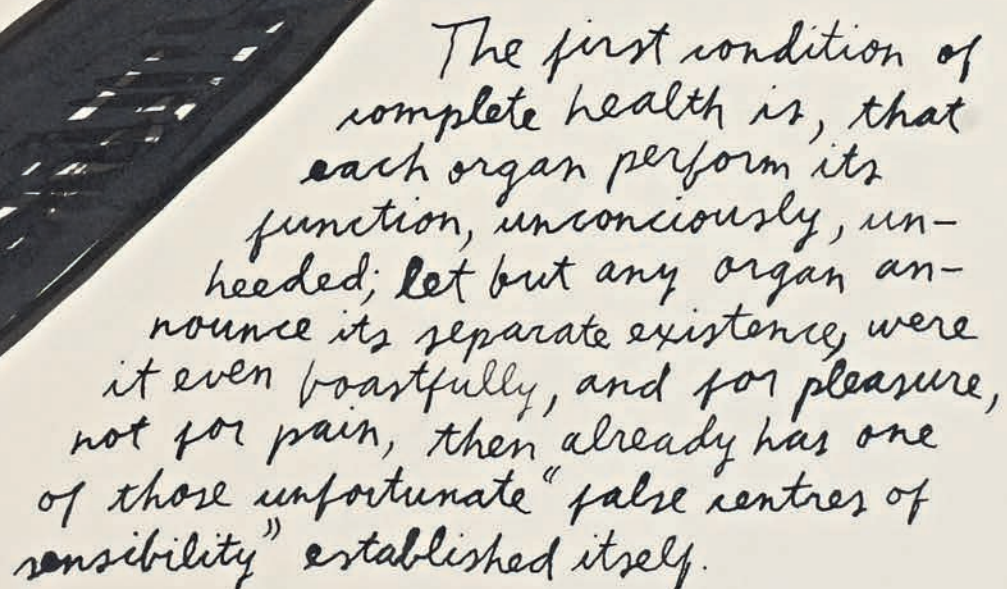 The first condition of
complete health is, that
each organ perform its
function, unconciously, un-
heeded; let but any organ an-
nounce its separate existence, were
it even boastfully, and for pleasure,
not for pain, then already has one
of those unfortunate "false centres of
sensibility" established itself.